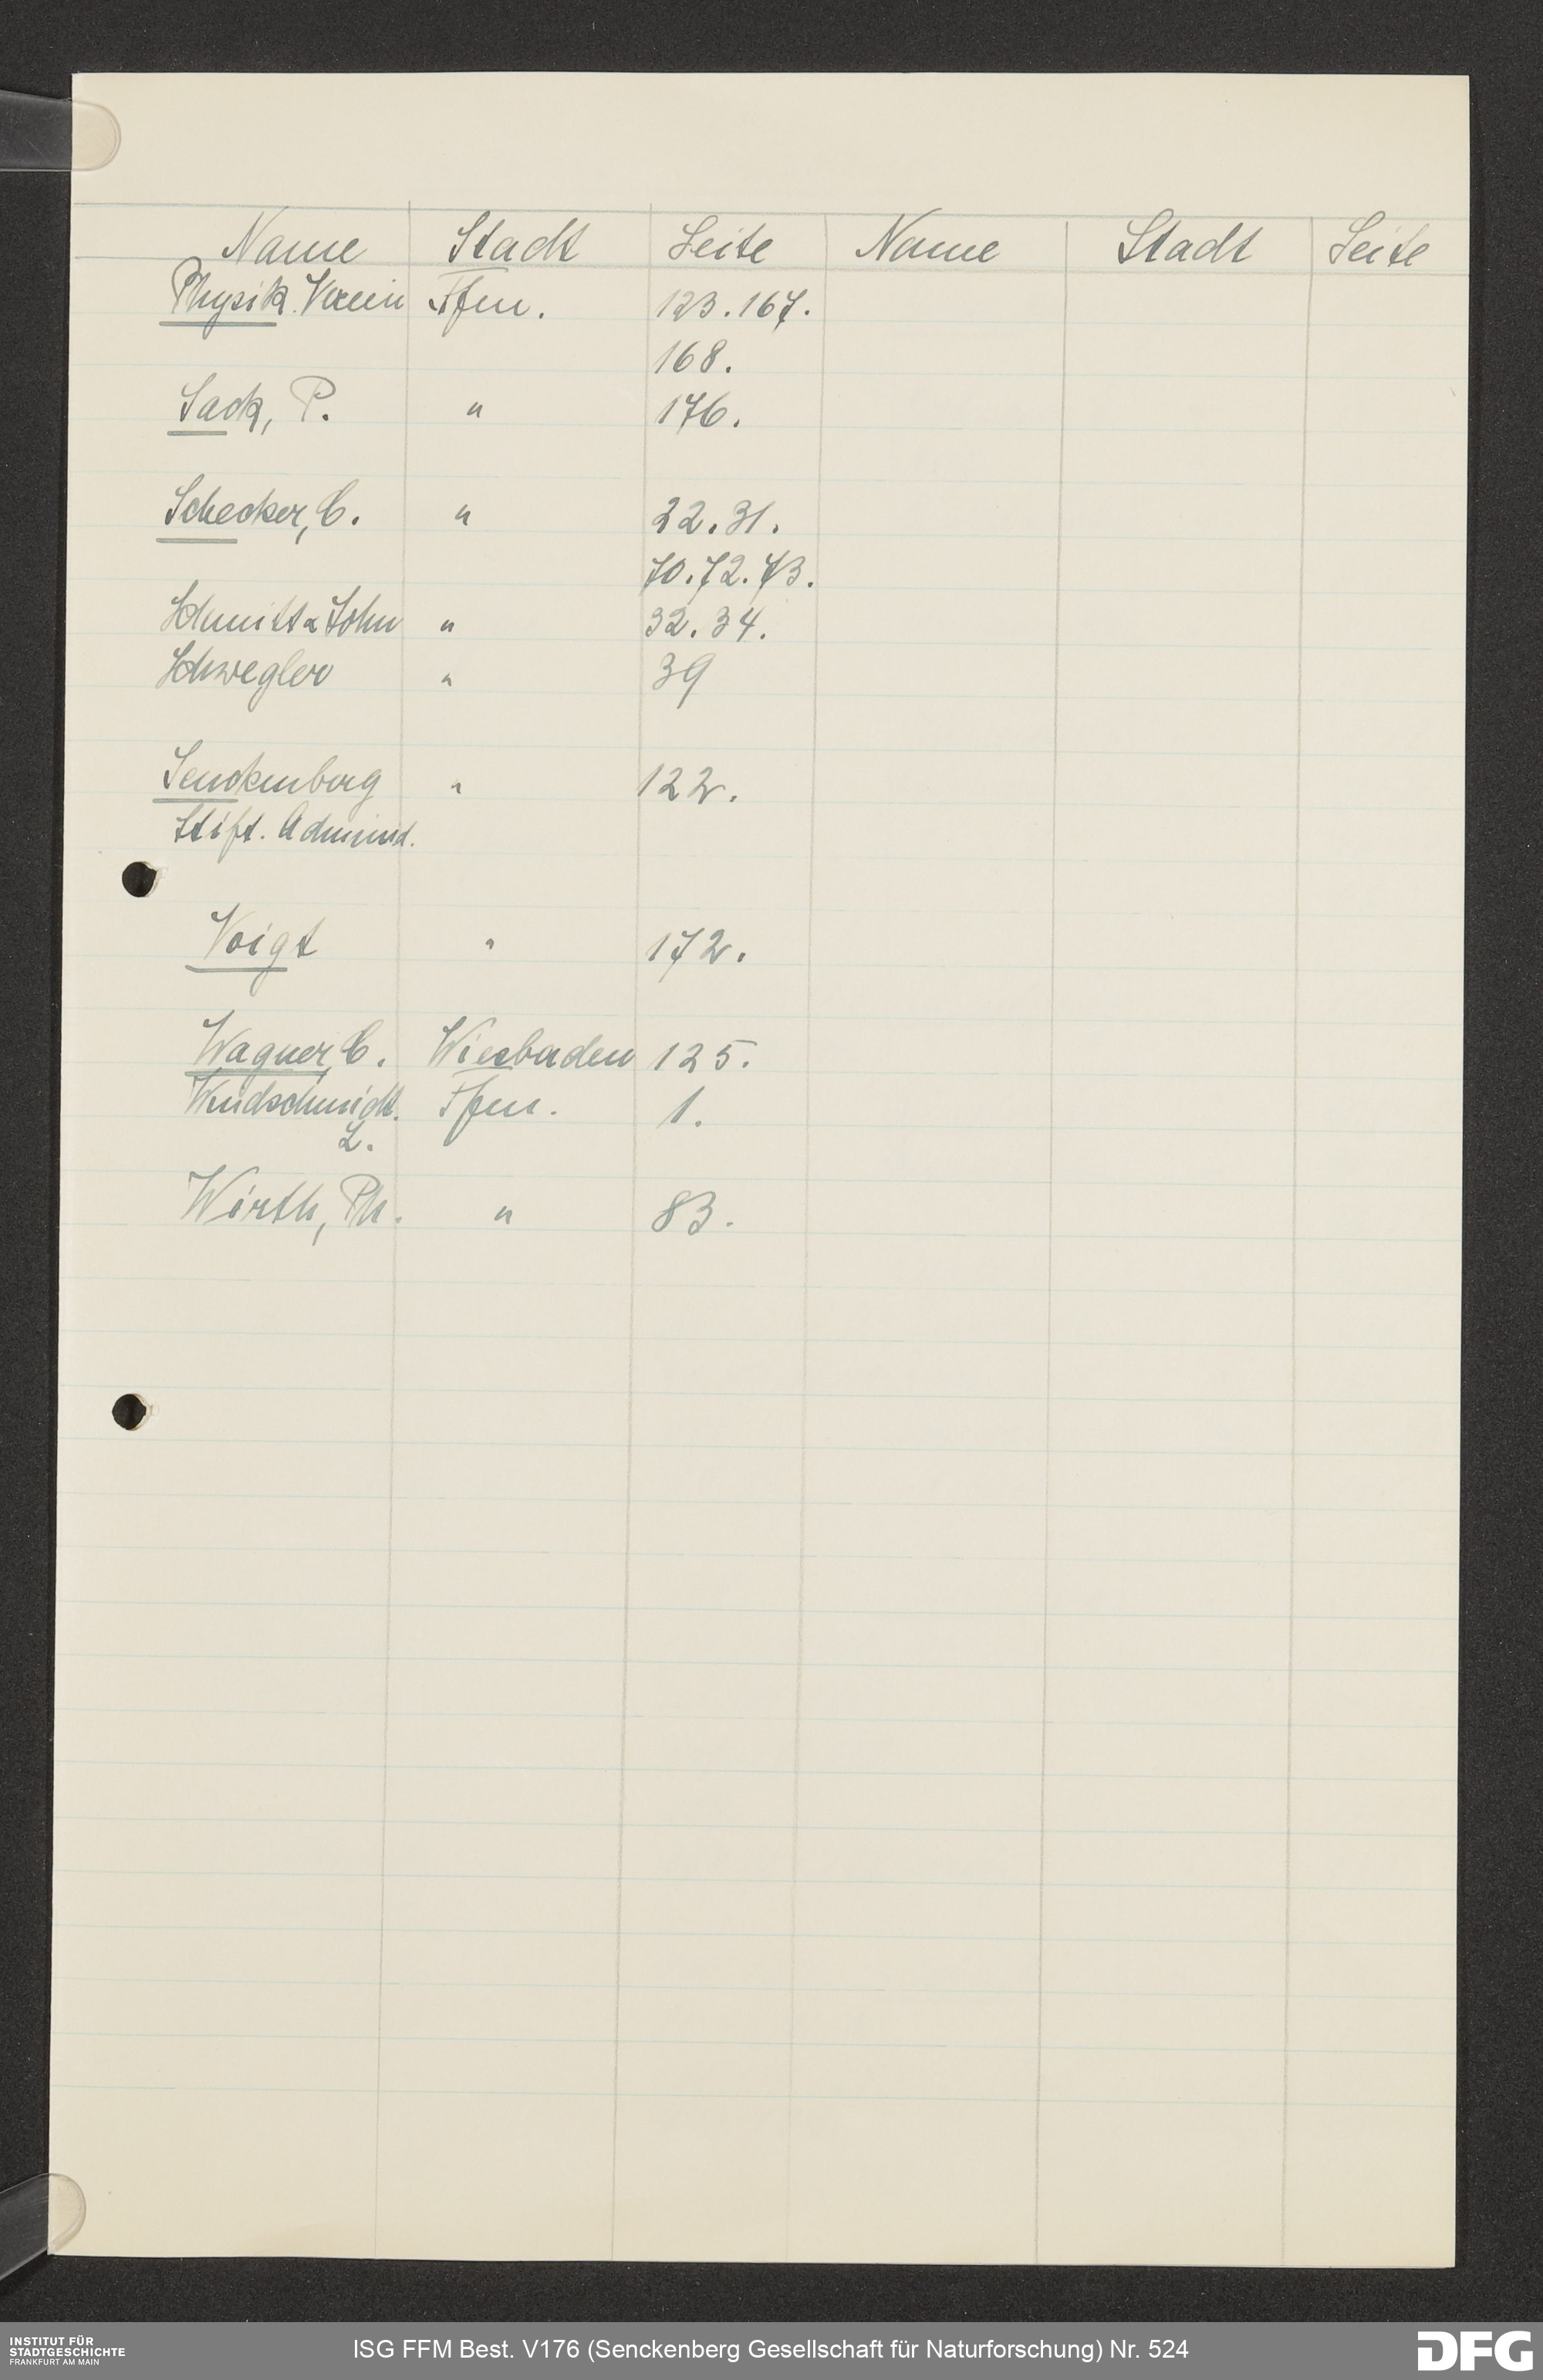 Name Stadt Seite Name Stadt Seite
Physik. Verein Ffm. 123. 167.
168.
Sack, P. " 176.
Schecker, C. " 22. 31.
70. 72. 73.
Schmitt & Sohn " 32. 34.
Schwegler " 39
Senckenberg " 122.
Stift. Administ.
Voigt " 172.
Wagner, C. Wiesbaden 125.
Windschmidt. Ffm. 1.
L.
Wirth, Ph. " 83.
INSTITUT FÜR
STADTGESCHICHTE
FRANKFURT AM MAIN
ISG FFM Best. V176 (Senckenberg Gesellschaft für Naturforschung) Nr. 524
DFG